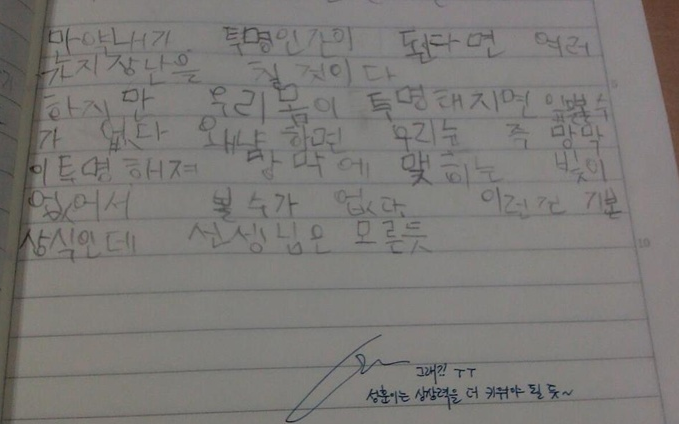 만약내가 투명인간이 됀다면 여러
가지장난을 칠 것이다
하지만 우리몸이 투명해지면 앞볼수
가 없다 왜냐하면 우리눈 즉 망막
이투명해져 망막에 맺히는 빛이
없어서 볼수가 없다. 이런건 기본
상식인데 선생님은 모르듯
그래긴 ㅜㅜ
성훈이는 상상력을 더 키워야 될 듯~